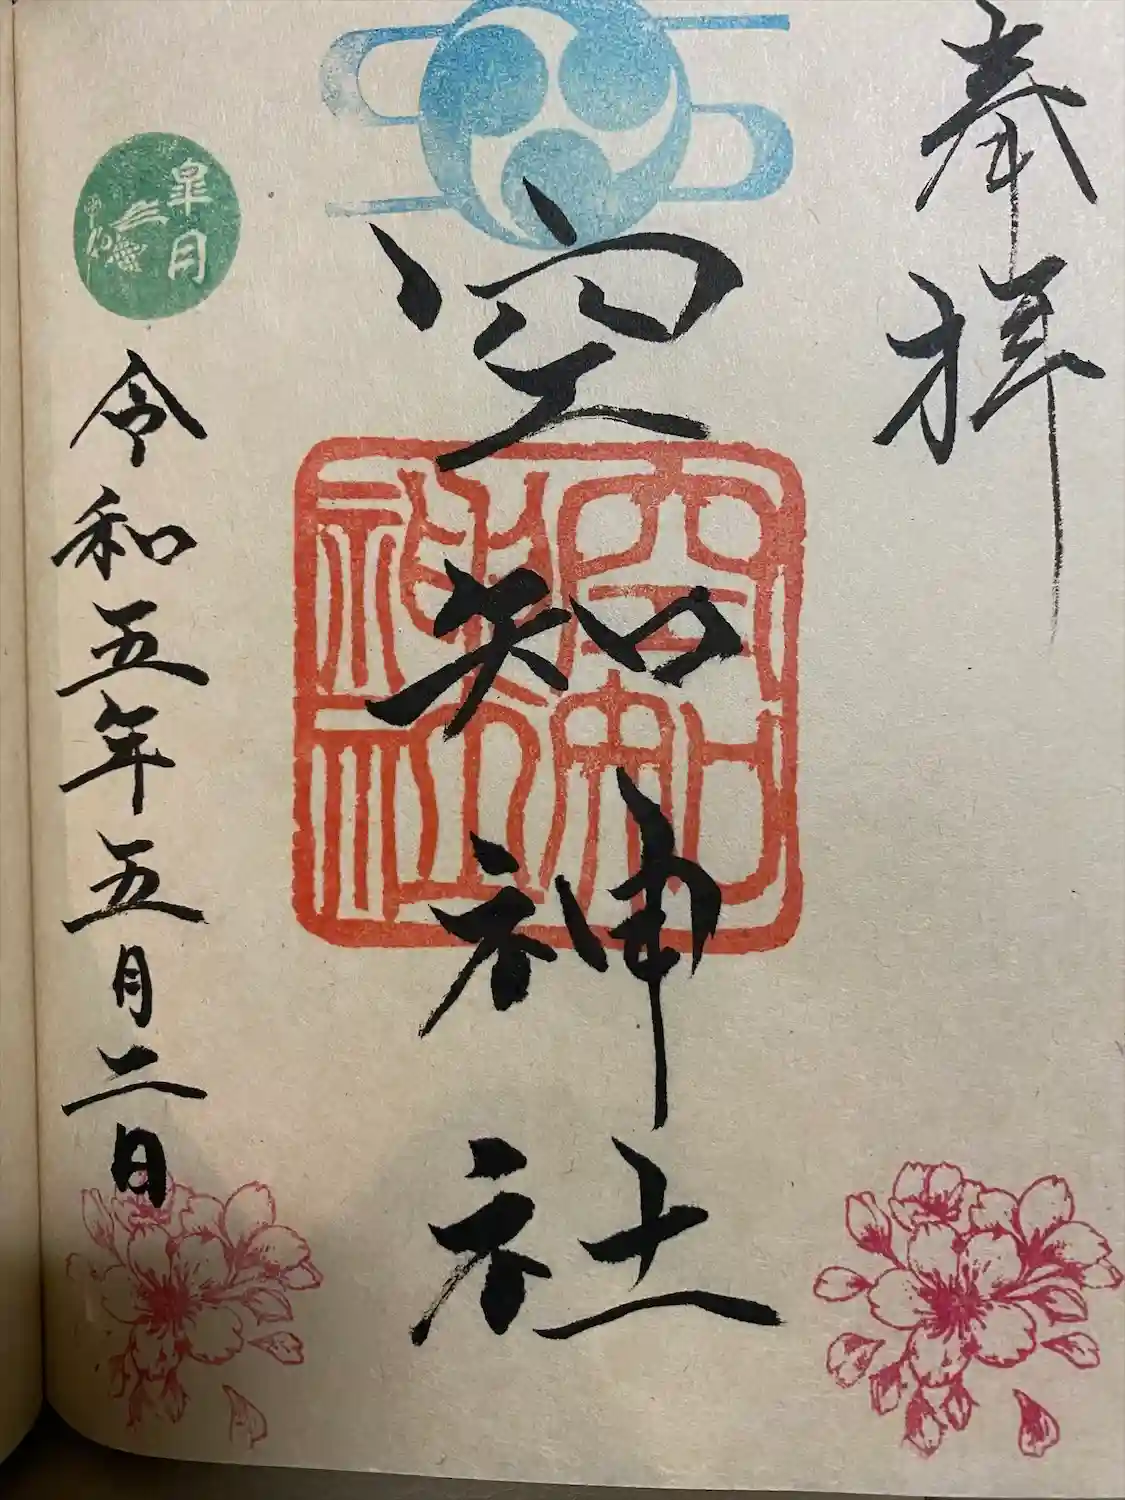 奉拝
空知神社
空知神社
皐月
令和五年五月二日